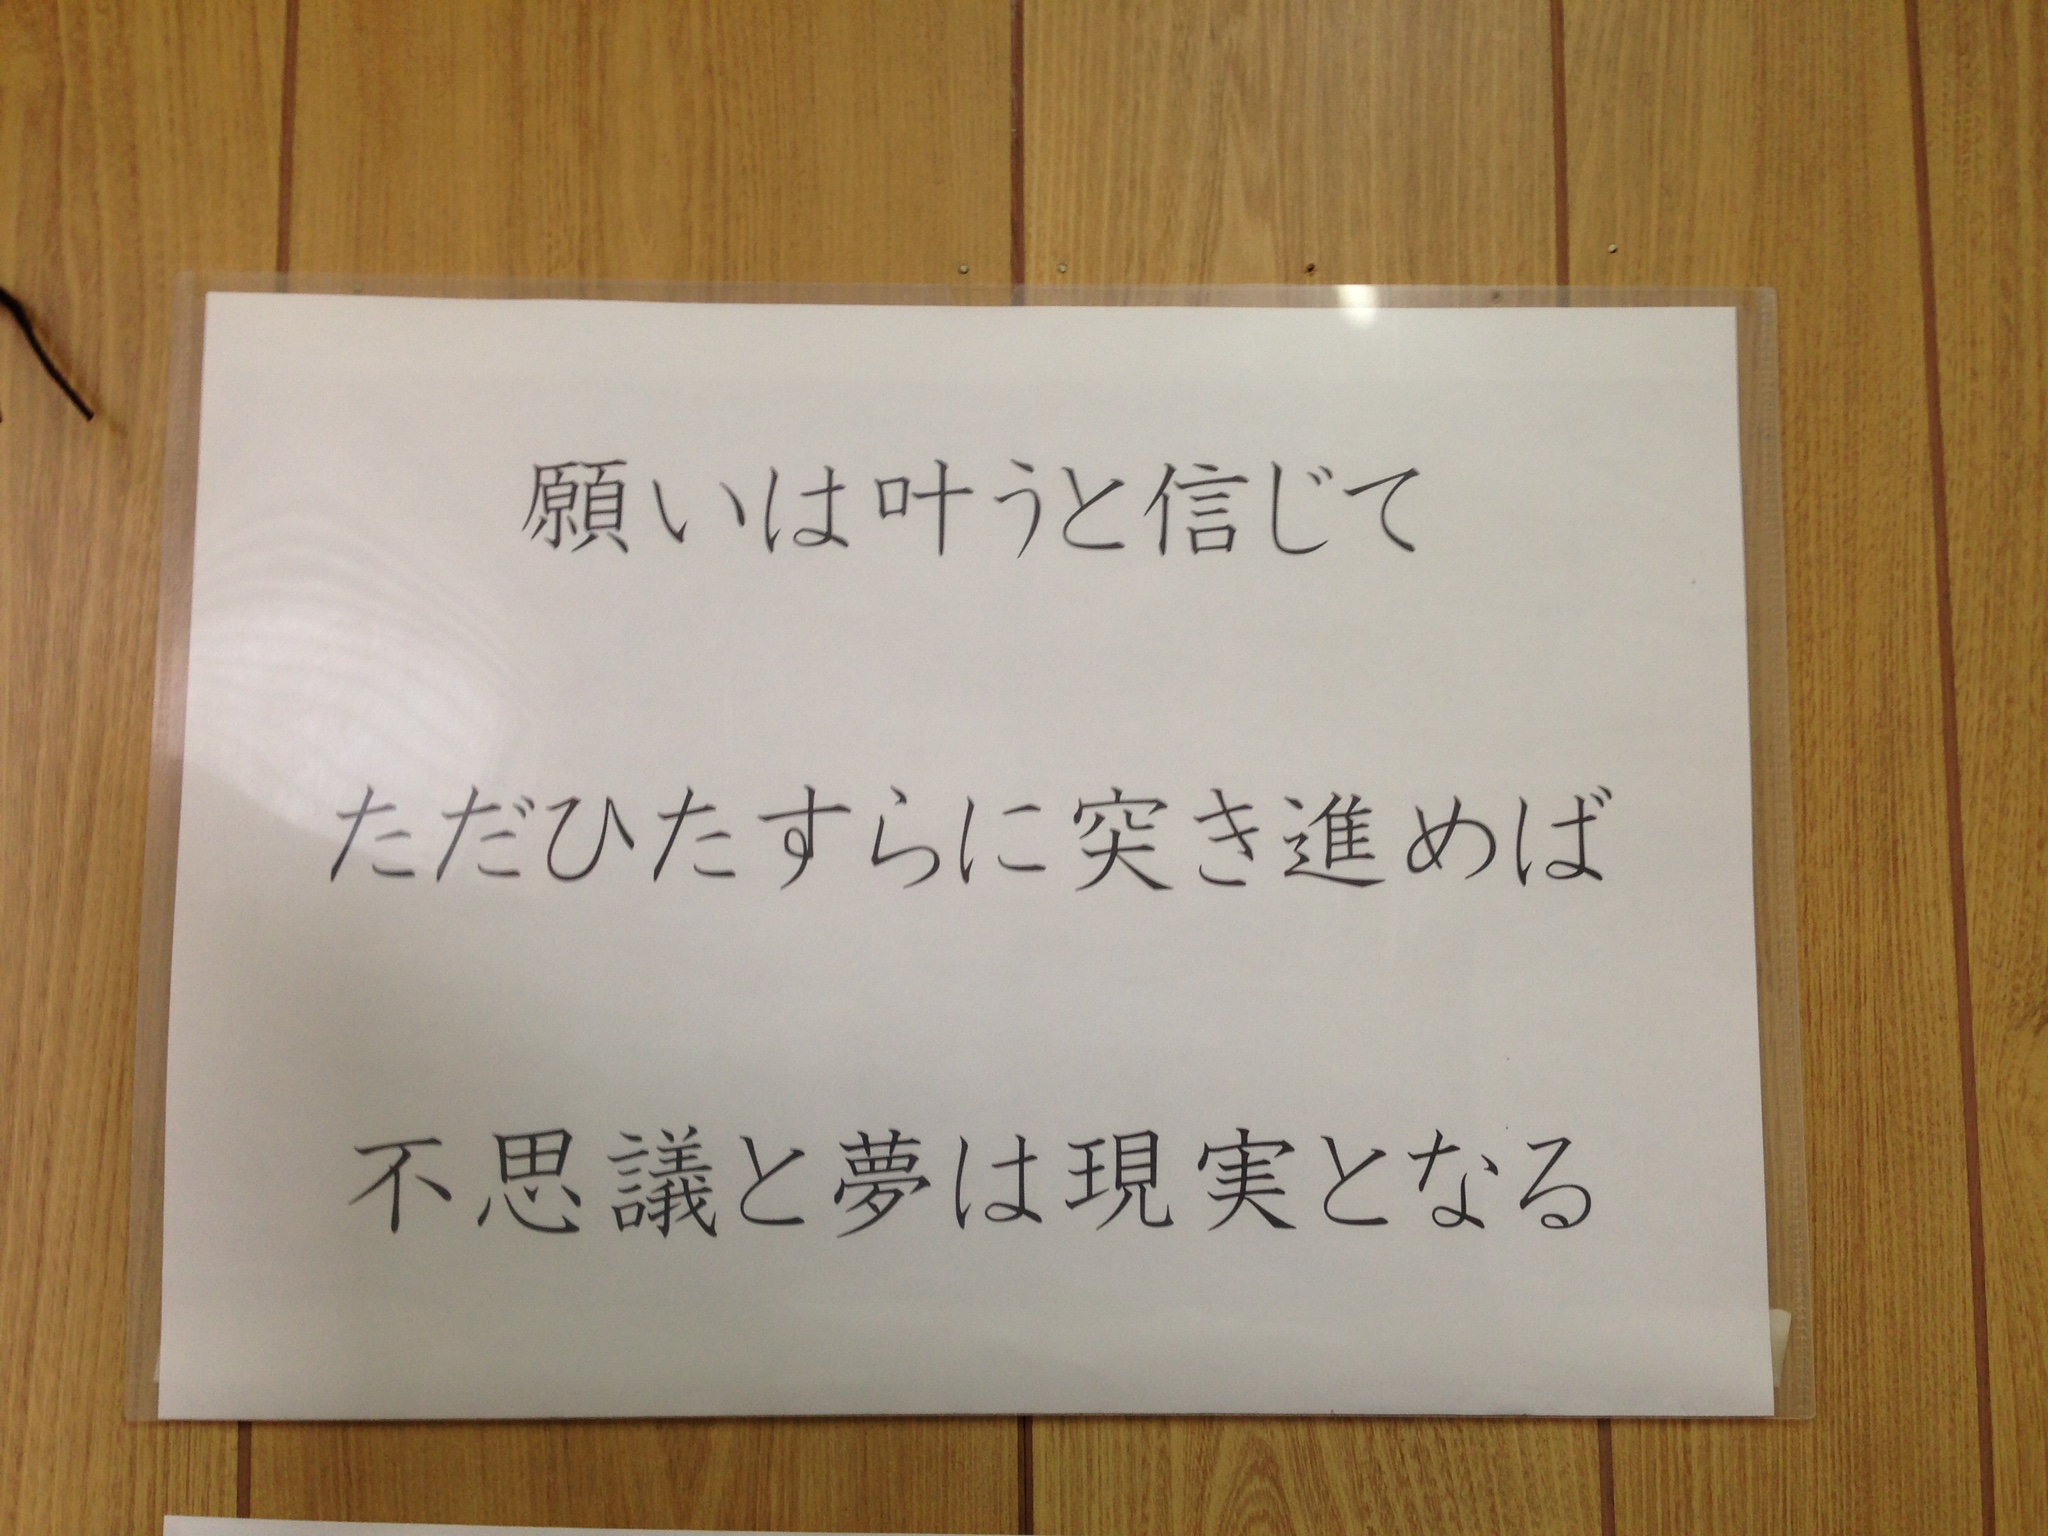 願いは叶うと信じて
ただひたすらに突き進めば
不思議と夢は現実となる